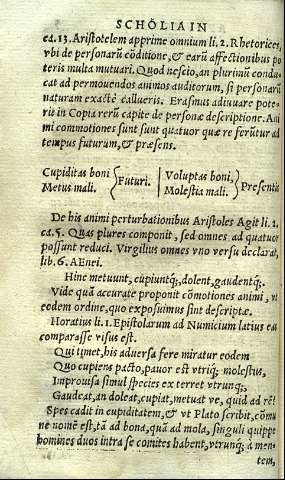 SCHOLIA IN
ca.13. Aristotelem apprime omnium li. 2. Rhetorices,
vbi de personarũ cõditione, & earũ affectionibus po
teris multa mutuari. Quod nescio, an plurimũ condu-
cat ad permouendos animos auditorum, si personarũ
naturam exactè callueris. Erasmus adiuuare pote-
rit in Copia rerũ capite de personæ descriptione. Ani
mi commotiones sunt sunt quatuor quæ referũtur ad
tempus futurum, & præsens.
Cupiditas boni, Metus mali. } Futuri. | Voluptas boni, Molestia mali. } Præsentis
De his animi perturbationibus Aristoles Agit li. 2.
ca. 5. Quas plures componit, sed omnes ad quatuor
possunt reduci. Virgilius omnes vno versu declarat,
lib. 6. AEnei.
Hinc metuunt, cupiuntq;, dolent, gaudentq;.
Vide quã accurate proponit cõmotiones animi, vt
eodem ordine, quo exposuimus sint descriptæ.
Horatius li. 1. Epistolarum ad Numicium latius ea
comparasse visus est.
Qui timet, his aduersa fere miratur eodem
Quo cupiens pacto, pauor est vtriq; molestus,
Improuisa simul species exterret vtrunq;,
Gaudeat, an doleat, cupiat, metuat ve, quid ad rẽ?
Spes cadit in cupiditatem, & vt Plato scribit, cõmu
ne nomẽ est, tã ad bona, quã ad mola, singuli quippe
homines duos intra se comites habent, vtrunq; a men-
tem,